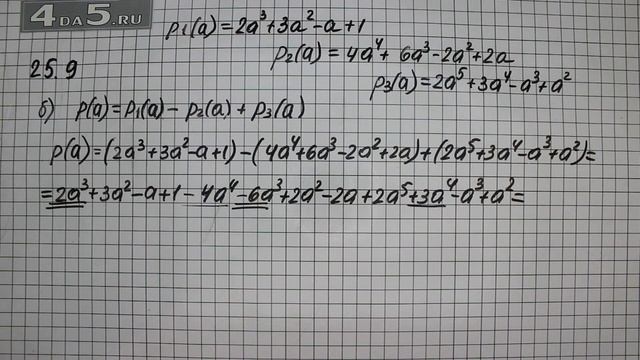 4 DA 5.RU
p₁(a)=2a³+3a²-a+1
p₂(a)=4a⁴+6a³-2a²+2a
25.9
p₃(a)=2a⁵+3a⁴-a³+a²
б) p(a)=p₁(a)-p₂(a)+p₃(a)
p(a)=(2a³+3a²-a+1)-(4a⁴+6a³-2a²+2a)+(2a⁵+3a⁴-a³+a²)=
=2a³+3a²-a+1-4a⁴-6a³+2a²-2a+2a⁵+3a⁴-a³+a²=